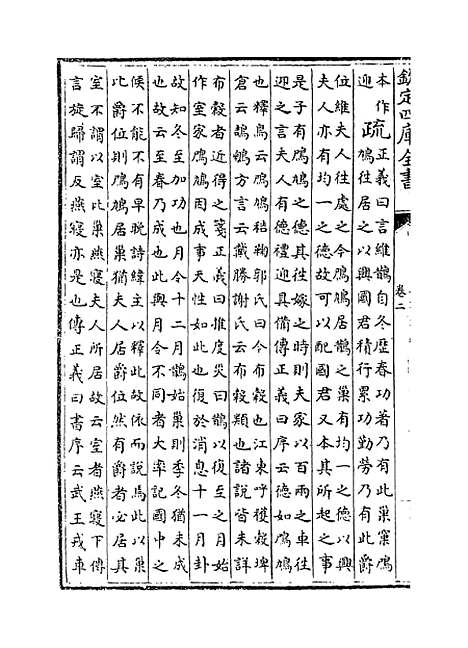 欽定四庫全書
卷二
本作
疏
正義曰言維鵲自冬歷春功著乃有此巢窠鳲
迎
鳩往居之以興國君積行累功勤勞乃有此爵
位維夫人往處之今鳲鳩居鵲之巢有均一之德以興
夫人亦有均一之德故可以配國君又本其所起之事
是子有鳲鳩之德其往嫁之時則夫家以百兩之車往
迎之言夫人有德禮迎具備傳正義曰序云德如鳲鳩
也釋鳥云鳲鳩秸鞠郭氏曰今布穀也江東呼穫穀埤
倉云鴶鵴方言云戴勝謝氏云布穀類也諸說皆未詳
布穀者近得之箋正義曰推度災曰鵲以復至之月始
作室家鳲鳩因成事天性如此也復於消息十一月卦
故知冬至加功也月令十二月鵲始巢則季冬猶未成
也故云至春乃成也此與月令不同者大率記國中之
候不能不有早晚詩緯主以釋此故依而說焉此以巢
比爵位則鳲鳩居巢猶夫人居爵位然有爵者必居其
室不謂以室比巢燕寢夫人所居故云室者燕寢下傳
言旋歸謂反燕寢亦是也傳正義曰書序云武王戎車